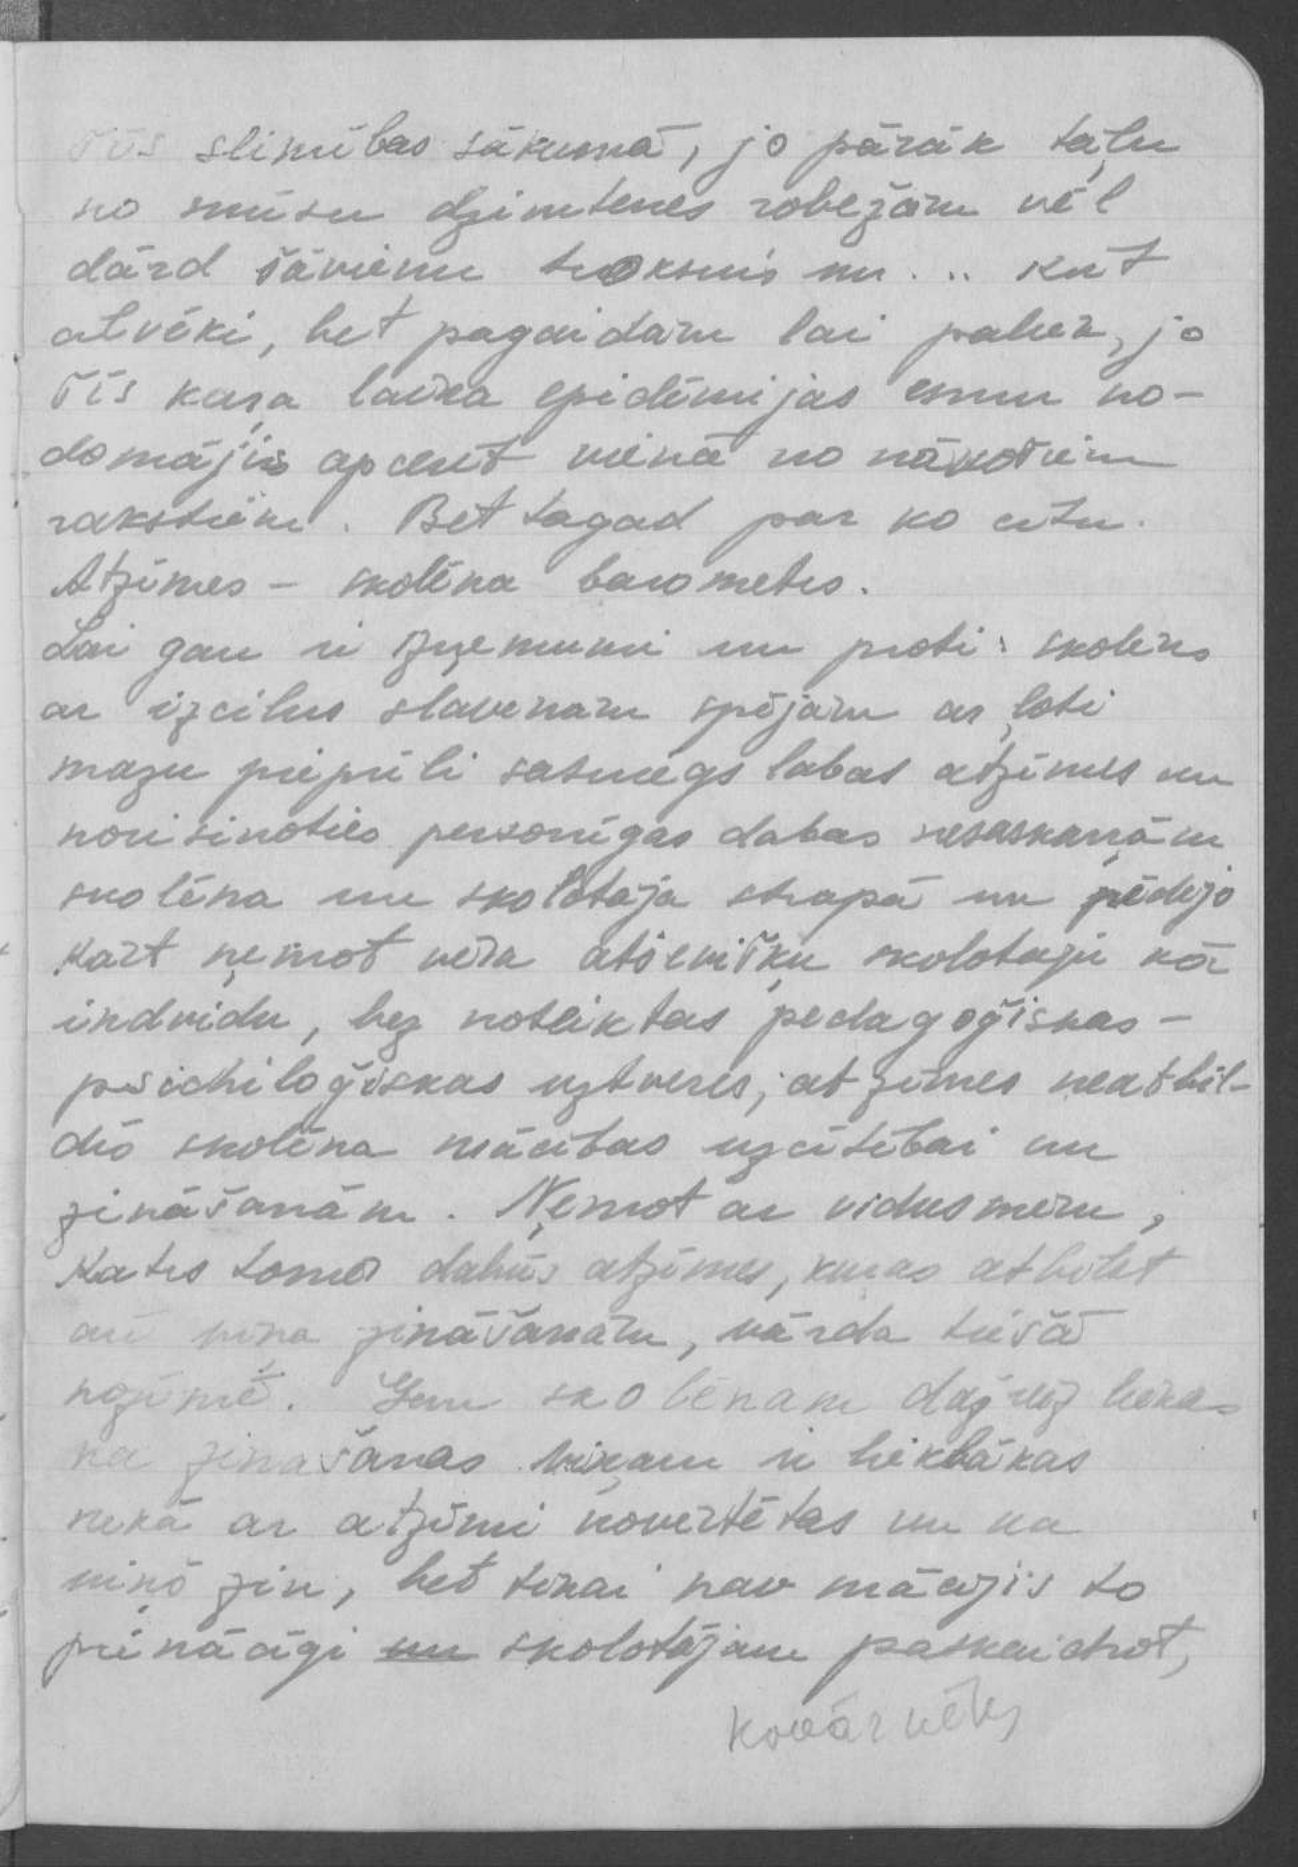 šīs slimības sākumā, jo pārāk tāļu
no mūsu dzimtenes robežām vēl
dārd šāvienu troksnis un ... kut
atvēki, bet pagaidām lai paliek, jo
šīs kaŗa laika epidēmijas esmu no-
domājis apcerēt vienā no nākošiem
rakstiem. Bet tagad par ko citu.
Atzīmes – skolēna barometrs.
Lai gan ir izņēmumi un proti: skolēns
ar izcilus slavenām spējām ar ļoti
mazu piepūli sasniegs labas atzīmes un
norisinoties personīgas dabas nesaskaņām
skolēna un skolotāja starpā un pēdējo
kārt ņemot vērā atsevišķu skolotāju kā
indvidu, bez noteiktas pedagoģiskas –
psichiloģiskas uztveres, atzīmes neatbil-
dīs skolēna mācības uzcītībai un
zināšanām. Ņemot ar vidusmēru,
katrs tomēr dabūs atzīmes, kuŗas atbilst
arī viņa zināšanām, vārda tiešā
nozīmē. Jau skolēnam dažreiz liekas
ka zināšanas viņam ir lieklākas
nekā ar atzīmi novērtētas un ka
viņš zin, bet tikai nav mācējis to
pienācīgi un skolotājam paskaidrot,
Kovārnēks